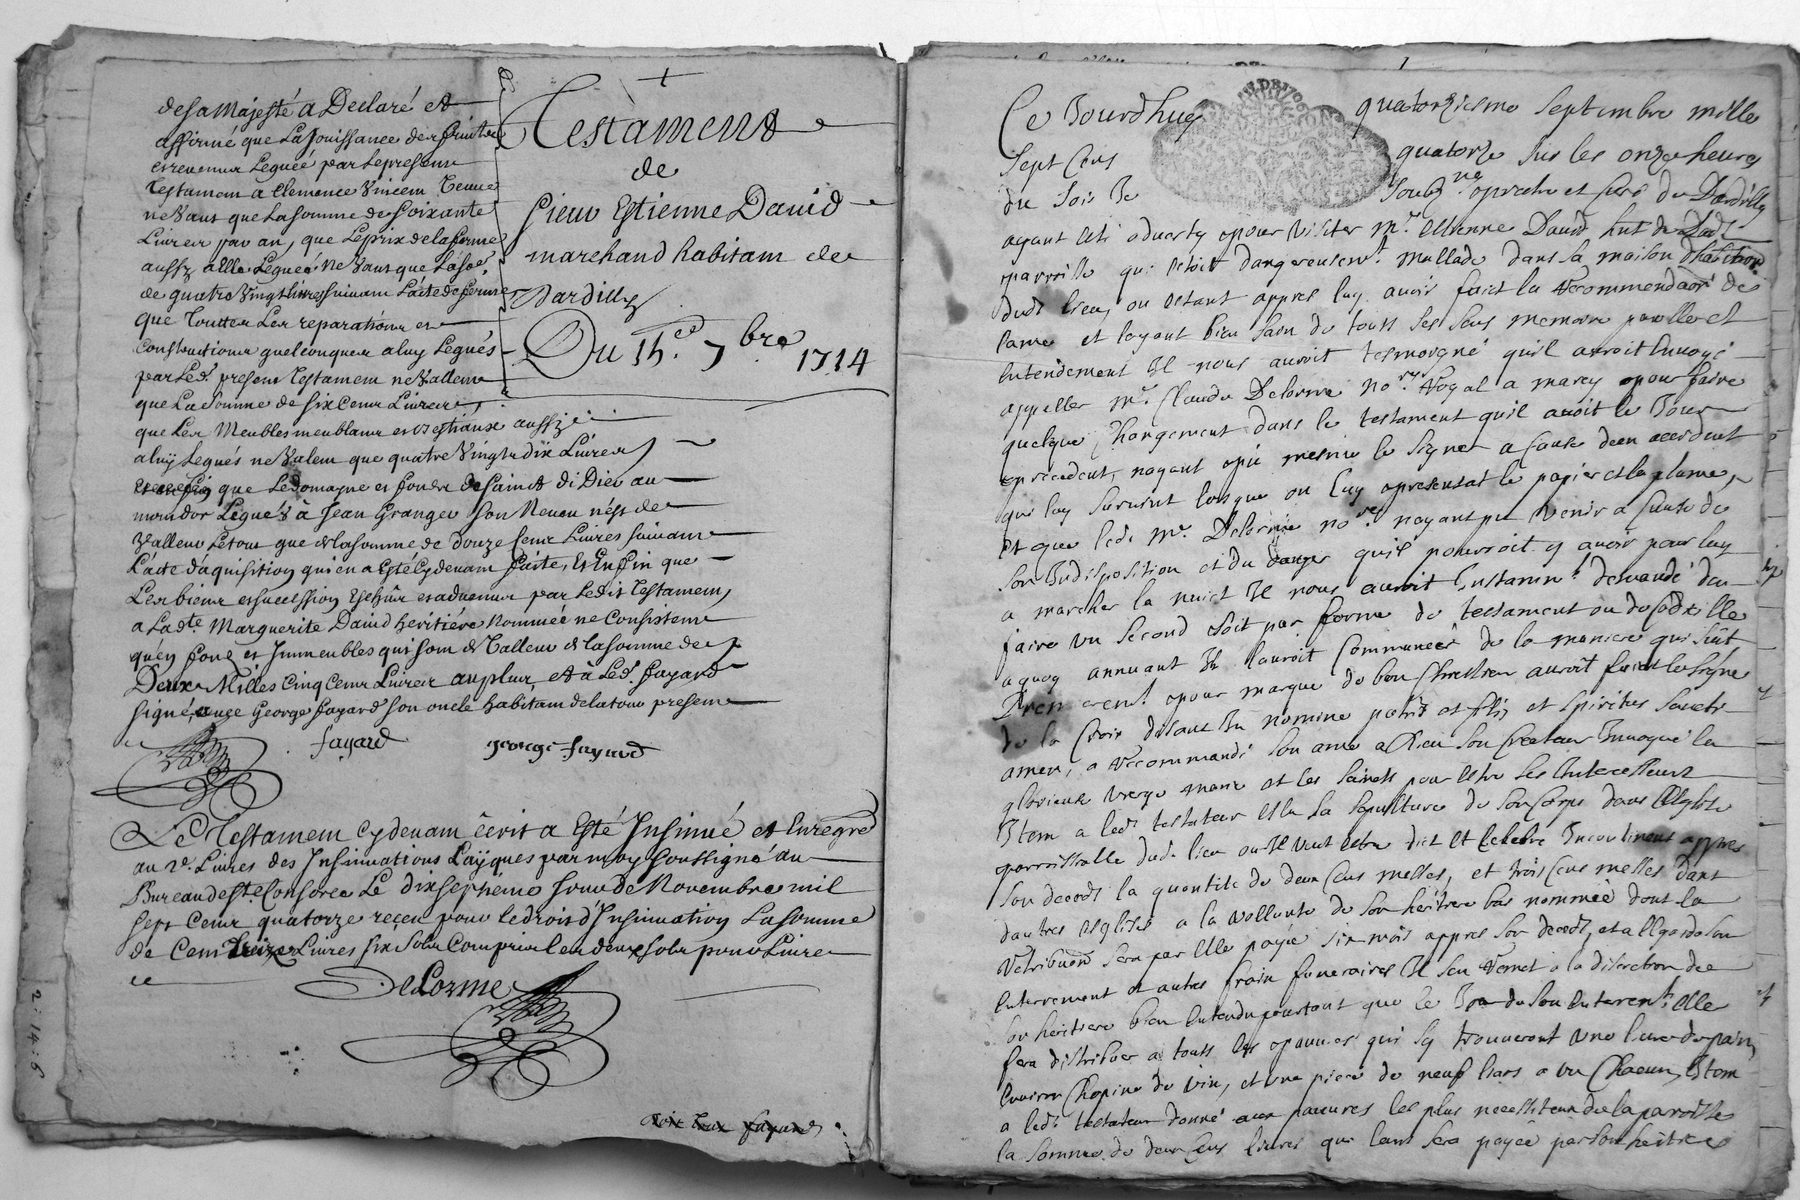 de sa Majesté a Declaré et
affirmé que La Jouissance des fruits
et revenus Leguée par Le present
Testament a Clemence Vincent Veuve
ne Vaut que La Somme de Soixante
Livres par an, que Le prix de la ferme
aussy a elle Leguée ne Vaut que La so.e
de quatre Vingt Livres suivant L'acte de ferme
que Toutes Les reparations et
Constructions quelconques a luy Legués
par Led. present Testament ne Vallent
que La Somme de Six Cent Livres,
que Les Meubles meublans et bestiaux aussy
a luy Legués ne Valent que quatre Vingts dix Livres
que Le Domayne et fonds de Sainct di Dier au
mont dor Legués a Jean Granges Son Neveu n'est de
Valleur Le tout que de la somme de Douze Cent Livres suivant
L'acte d'aquisition qui en a Esté Cydevant faite, Et Enfin que
Les biens et succession Eschûs et advenus par Ledit Testament
a Lad.te Marguerite David héritiére Nommée ne Consistent
qu'en fonds et Immeubles qui sont de Valleur de la somme de
Deux Milles Cinq Cent Livres au plus et à Led. fayard
signé, avec George fayard son oncle habitant de la tour present
fayard
george fayard
Le Testament Cydevant écrit a Esté Insinué et Enregré
au 2e. Livres des Insinuations Layques par moy Soussigné au
Bureau de Ste. Consorce Le dixseptiéme Jour de Novembre mil
Sept Cent quatorze reçeu pour le droit d'Insinuation La somme
de Cent treize Livres Six Sols Compris les deux sols pour Livre
DeLorme
Testament
de
Sieur Estienne David
marchand habitant de
Dardilly
Du 14e. 7bre 1714
Ce Jourdhuy quatorziesme Septembre mille
Sept Cens quatorze sur les onze heures
du Soir Je Soubz.né prestre et curé de Dardilly
ayant esté adverty pour visiter Mr. Estienne David
parroisse qui estoit dangereusemt. mallade dans sa maison
dudt lieu, ou estant appres luy avoir faict la recommendaon de
lame et layant bien sain de touts ses sens memoire parolle et
entendement Il nous auroit tesmoigné qu'il auroit envoyé
appeller Mr. Claude Delorme nore. Royal a marcy pour faire
quelque changement dans le testament qu'il avoit le Jour
precedent, nayant peu mesme le signer a cause d'un accident
qui luy survint lorsque on luy presentat le papier et la plume,
Et que led. Mr. Delorme nore. nayant pu venir a cause de
son Indisposition et du danger qu'il pourroit y avoir pour luy
a marcher la nuict Il nous auroit Instamt. demandé den
faire un second soit par forme de testament ou de codicille
a quoy annuant Il l'auroit Commencés de la maniere qui suit
Premierent. pour marque de bon Chrestien auroit faict le signe
de la Croix disant In nomine patris et filii et spiritus sancti
amen, a recommandé son ame a Dieu son Createur Invoqué la
glorieuse vierge marie et les saincts pour estre ses Intercesseurs
Item a ledt testateur eslu la sepulture de son Corps dans l'Eglise
parroissialle dudt lieu ou Il veut estre dict et celebré Incontinent appres
son deceds la quantité de deux Cens messes, et trois Cens messes dans
d'autres esglises a la vollonté de son héritiere bas nommée dont la
retribuon sera par elle payée six mois appres son deceds, et a l'Egard de son
enterrement et autres frais funeraires Il s'en remet a la discretion de
sa héritiere bien entendu pourtant que le Jour de son enterremt. elle
fera distribuer a touts les pauvres qui s'y trouveront une livre de pain,
environ Chopine de vin, et une piece de neuf liars a un Chacun, Item
a ledt testateur donné aux pauvres les plus necessiteux de la parroisse
la somme de deux Cens livres qui leur sera payée par son héritiere